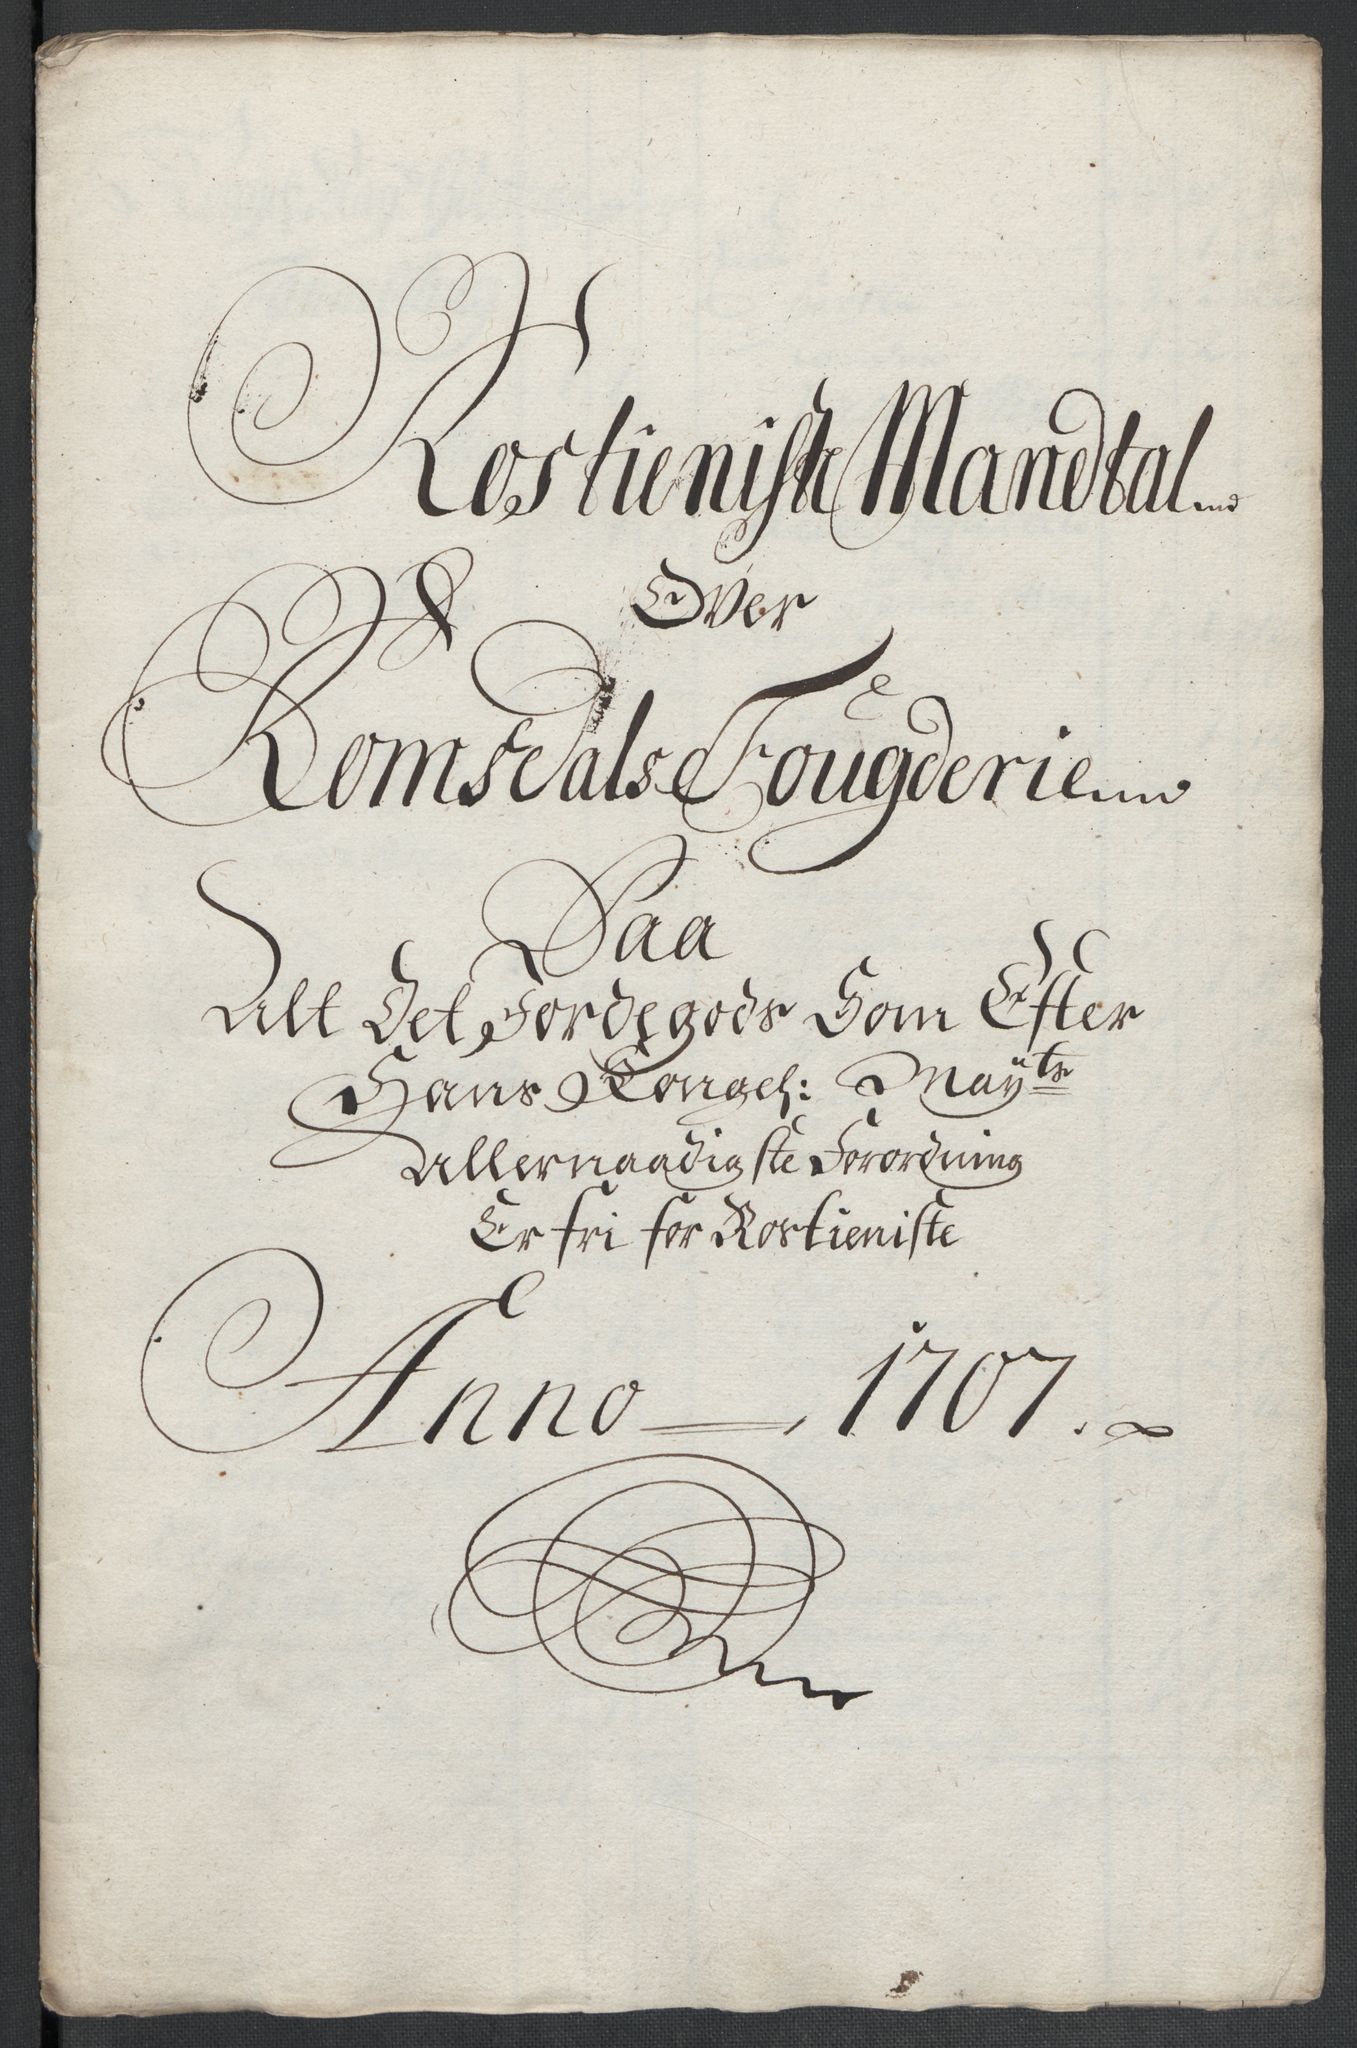 Rostieniste Mandtal
Over
Romsdals Fougderie
Paa
Alt Det Jordegods Som Efter
Hans Kongel: Mayts
Allernaadigste Forordning
Er fri for Rostieniste
Anno 1707.